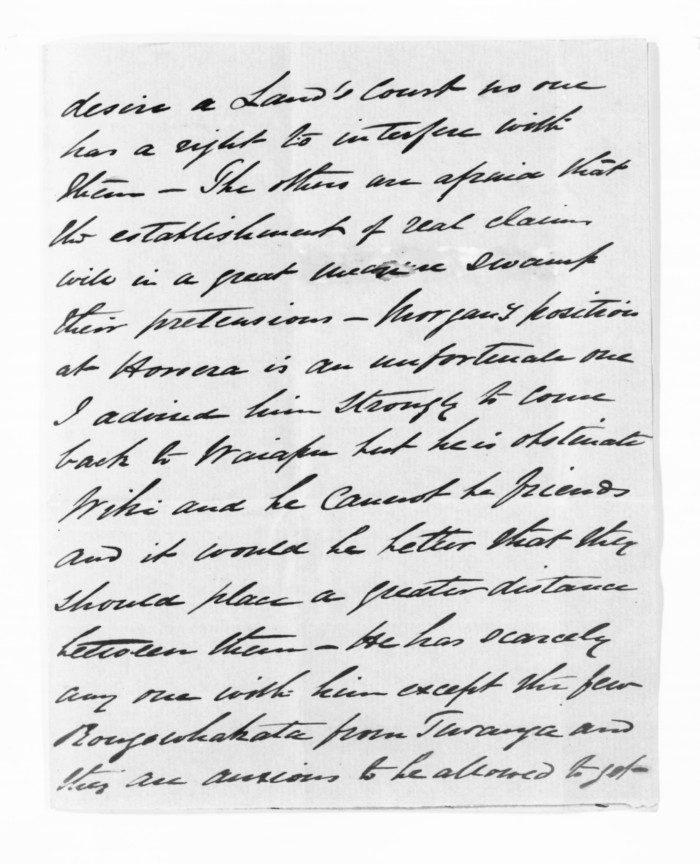 desire a Land's Court no one
has a right to interfere with
them – The others are afraid that
the establishment of real claims
will in a great measure swamp
their pretensions – Morgan's position
at Horoera is an unfortunate one
I advised him strongly to come
back to Waiapu but he is obstinate
Wiki and he cannot be friends
and it would be better that they
should place a greater distance
between them – He has scarcely
any one with him except the few
Rongowhakata from Turanga and
they are anxious to be allowed to get